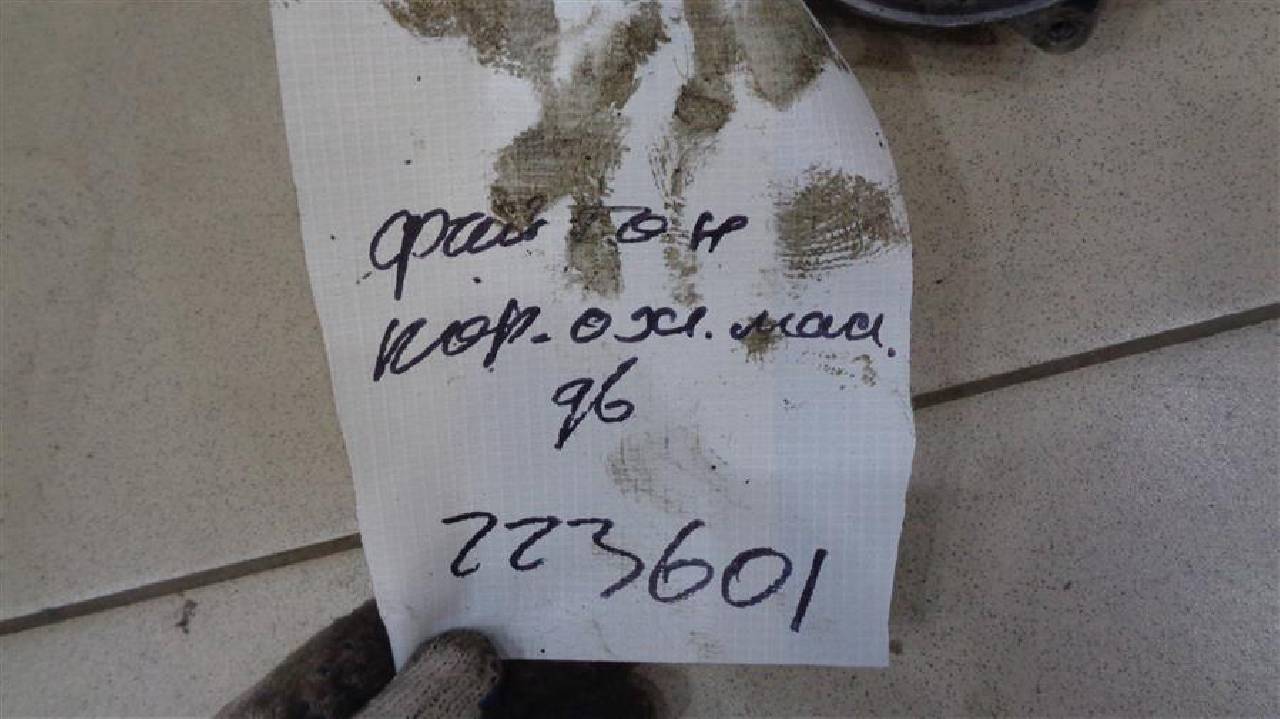 файтон
кор. охл. мас.
дв
223601